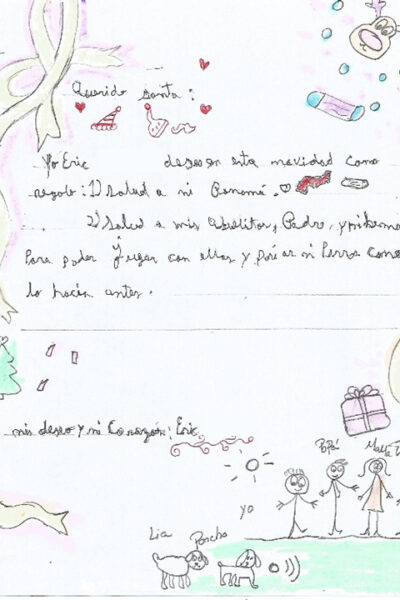 Querido santa:
Yo Eric deseo en esta navidad como
regalo: 1) Salud a mi
2) Salud a mis Abuelitos, Padre, y
Para poder Jugar con ellos y mi Perros Como
lo hacía antes.
mis deseo y mi Corazón: Eric
Papá
yo
Lia Poncho